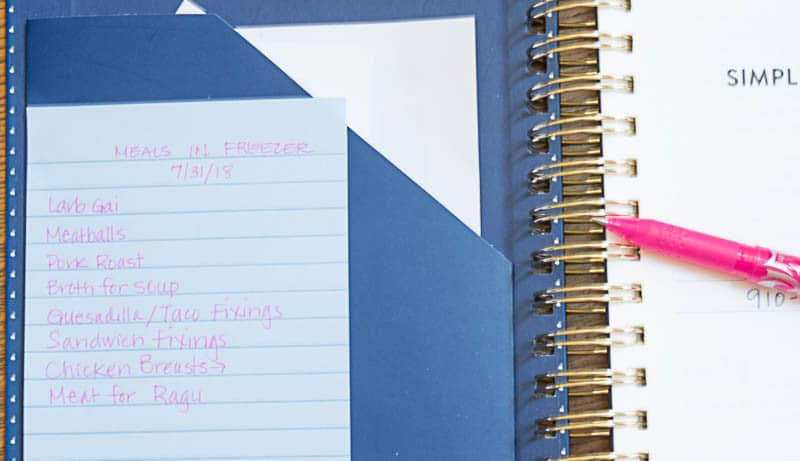 MEALS IN FREEZER
7/31/18
Larb Gai
Meatballs
Pork Roast
Broth for soup
Quesadilla/Taco Fixings
Sandwich Fixings
Chicken Breasts→
Meat for Ragu
SIMPL
910-